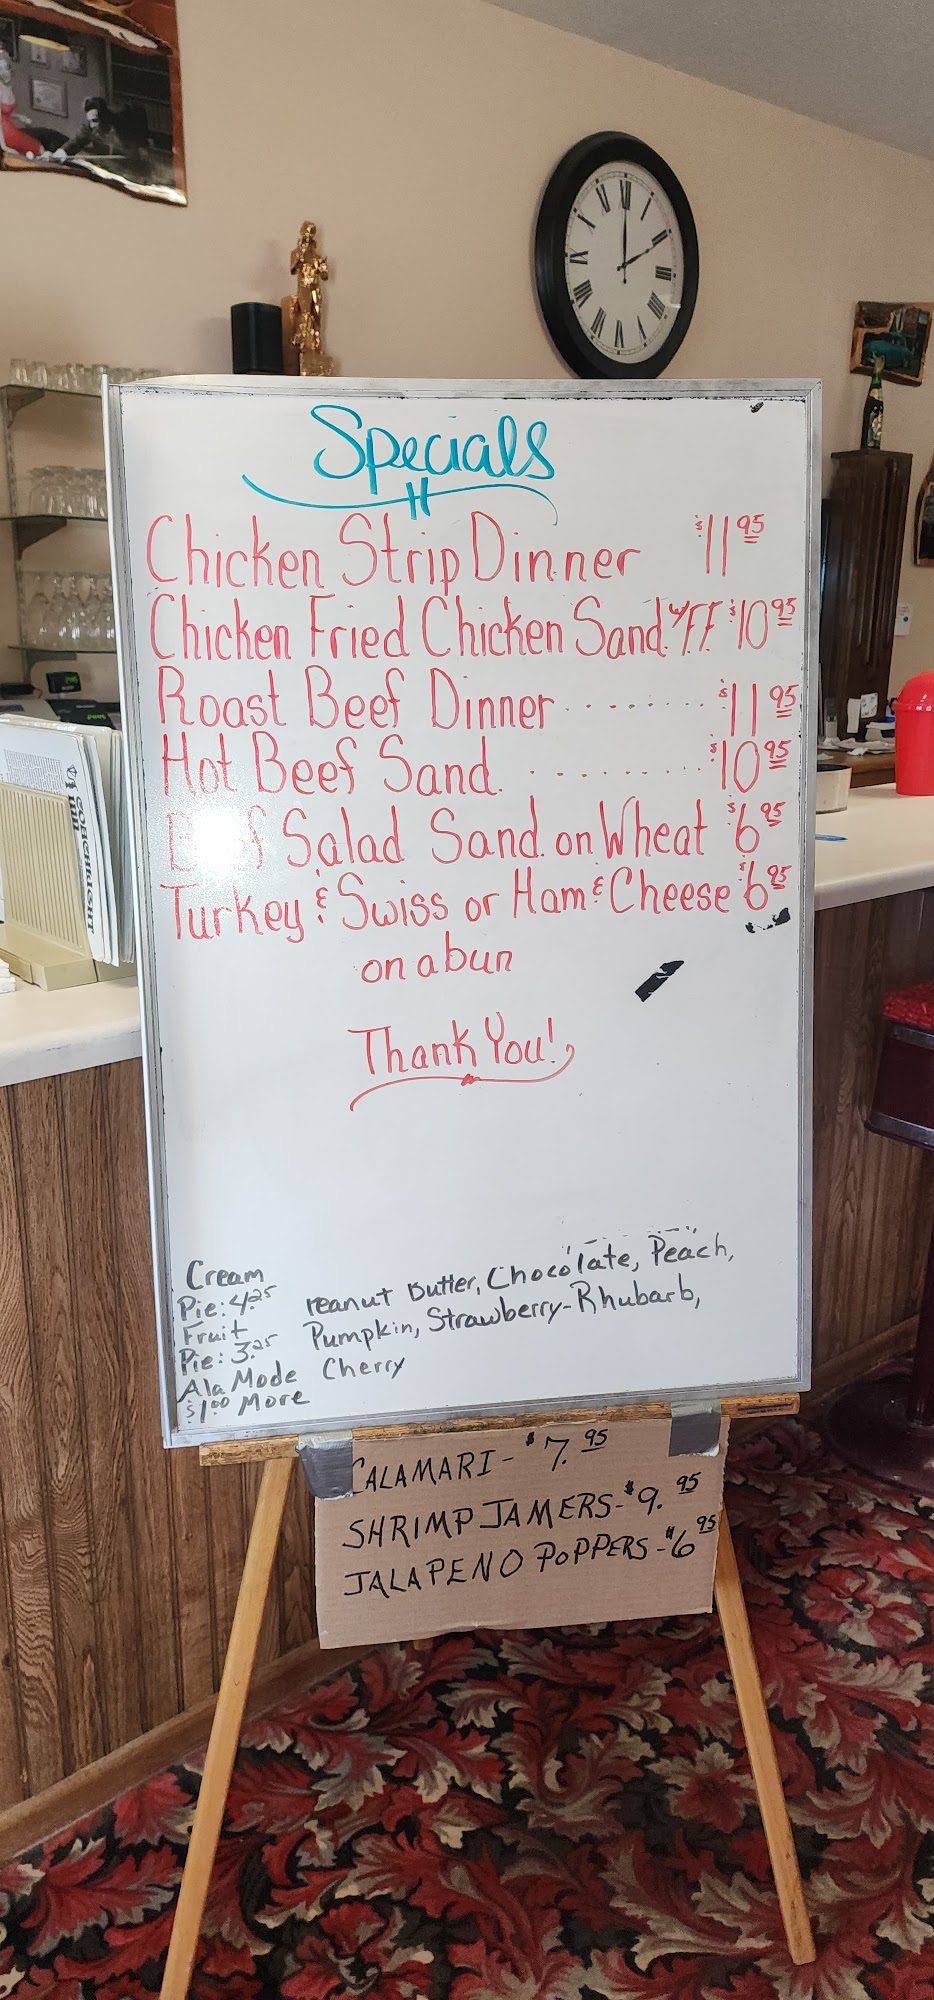 Specials
Chicken Strip Dinner $11 95
Chicken Fried Chicken Sand. w/ F.F. $10 95
Roast Beef Dinner ........ $11 95
Hot Beef Sand. ......... $10 95
Beef Salad Sand. on Wheat $6 95
Turkey & Swiss or Ham & Cheese $6 95
on a bun
Thank You!
Cream
Pie: 4.25
Fruit
Pie: 3.25
Ala Mode
$1.00 More
Peanut Butter, Chocolate, Peach,
Pumpkin, Strawberry-Rhubarb,
Cherry
CALAMARI - $7.95
SHRIMP JAMERS - $9.95
JALAPENO POPPERS - $6 95
COACHLIGHT
INN